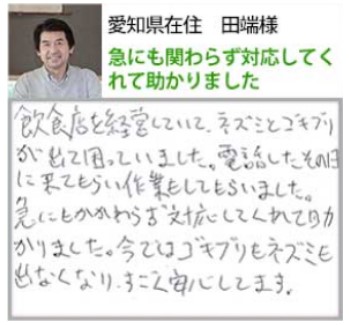 愛知県在住　田端様
急にも関わらず対応してく
れて助かりました
飲食店を経営していて、ネズミとゴキブリ
が出て困っていました。電話したその日
に来てもらい作業もしてもらいました。
急にもかかわらず対応してくれて助
かりました。今ではゴキブリもネズミも
出なくなり、すごく安心してます。